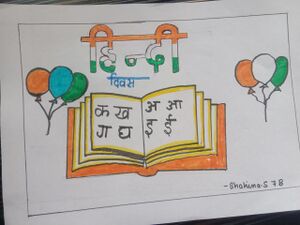 हिन्दी
दिवस
क ख
ग घ
अ आ
इ ई
-Shahina.S 7B